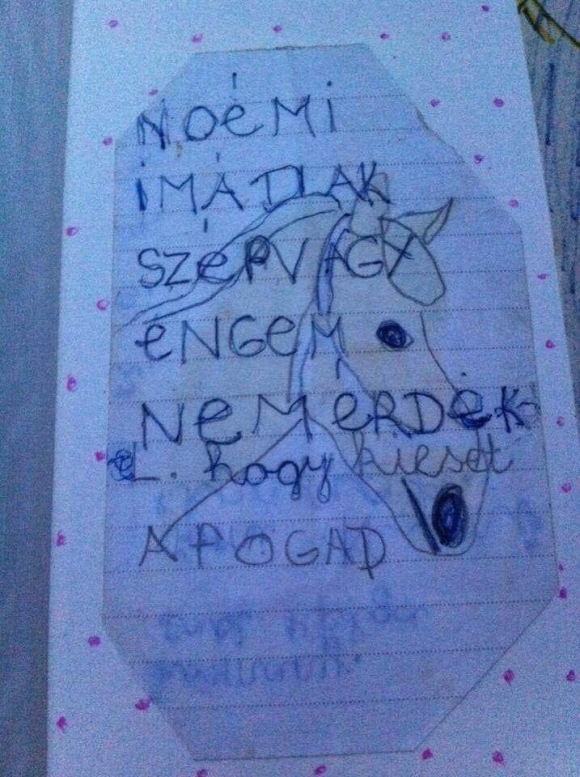 NOéMi
iMÁDLAK
SZéPVAGY
eNGeM
NeMéRDéK
eL. hogy kieset
A FOGAD